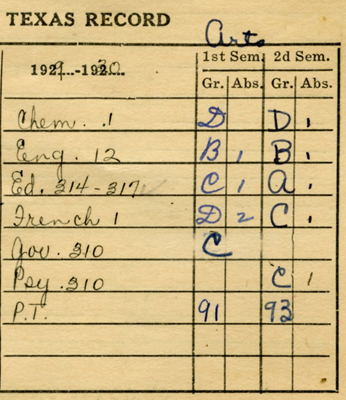 TEXAS RECORD
Arts
1929-1930 1st Sem. 2d Sem.
Gr. Abs. Gr. Abs.
Chem. 1 D D 1
Eng. 12 B 1 B 1
Ed. 314-317 C 1 A 1
French 1 D 2 C 1
Gov. 310 C
Psy. 310 C 1
P.T. 91 93